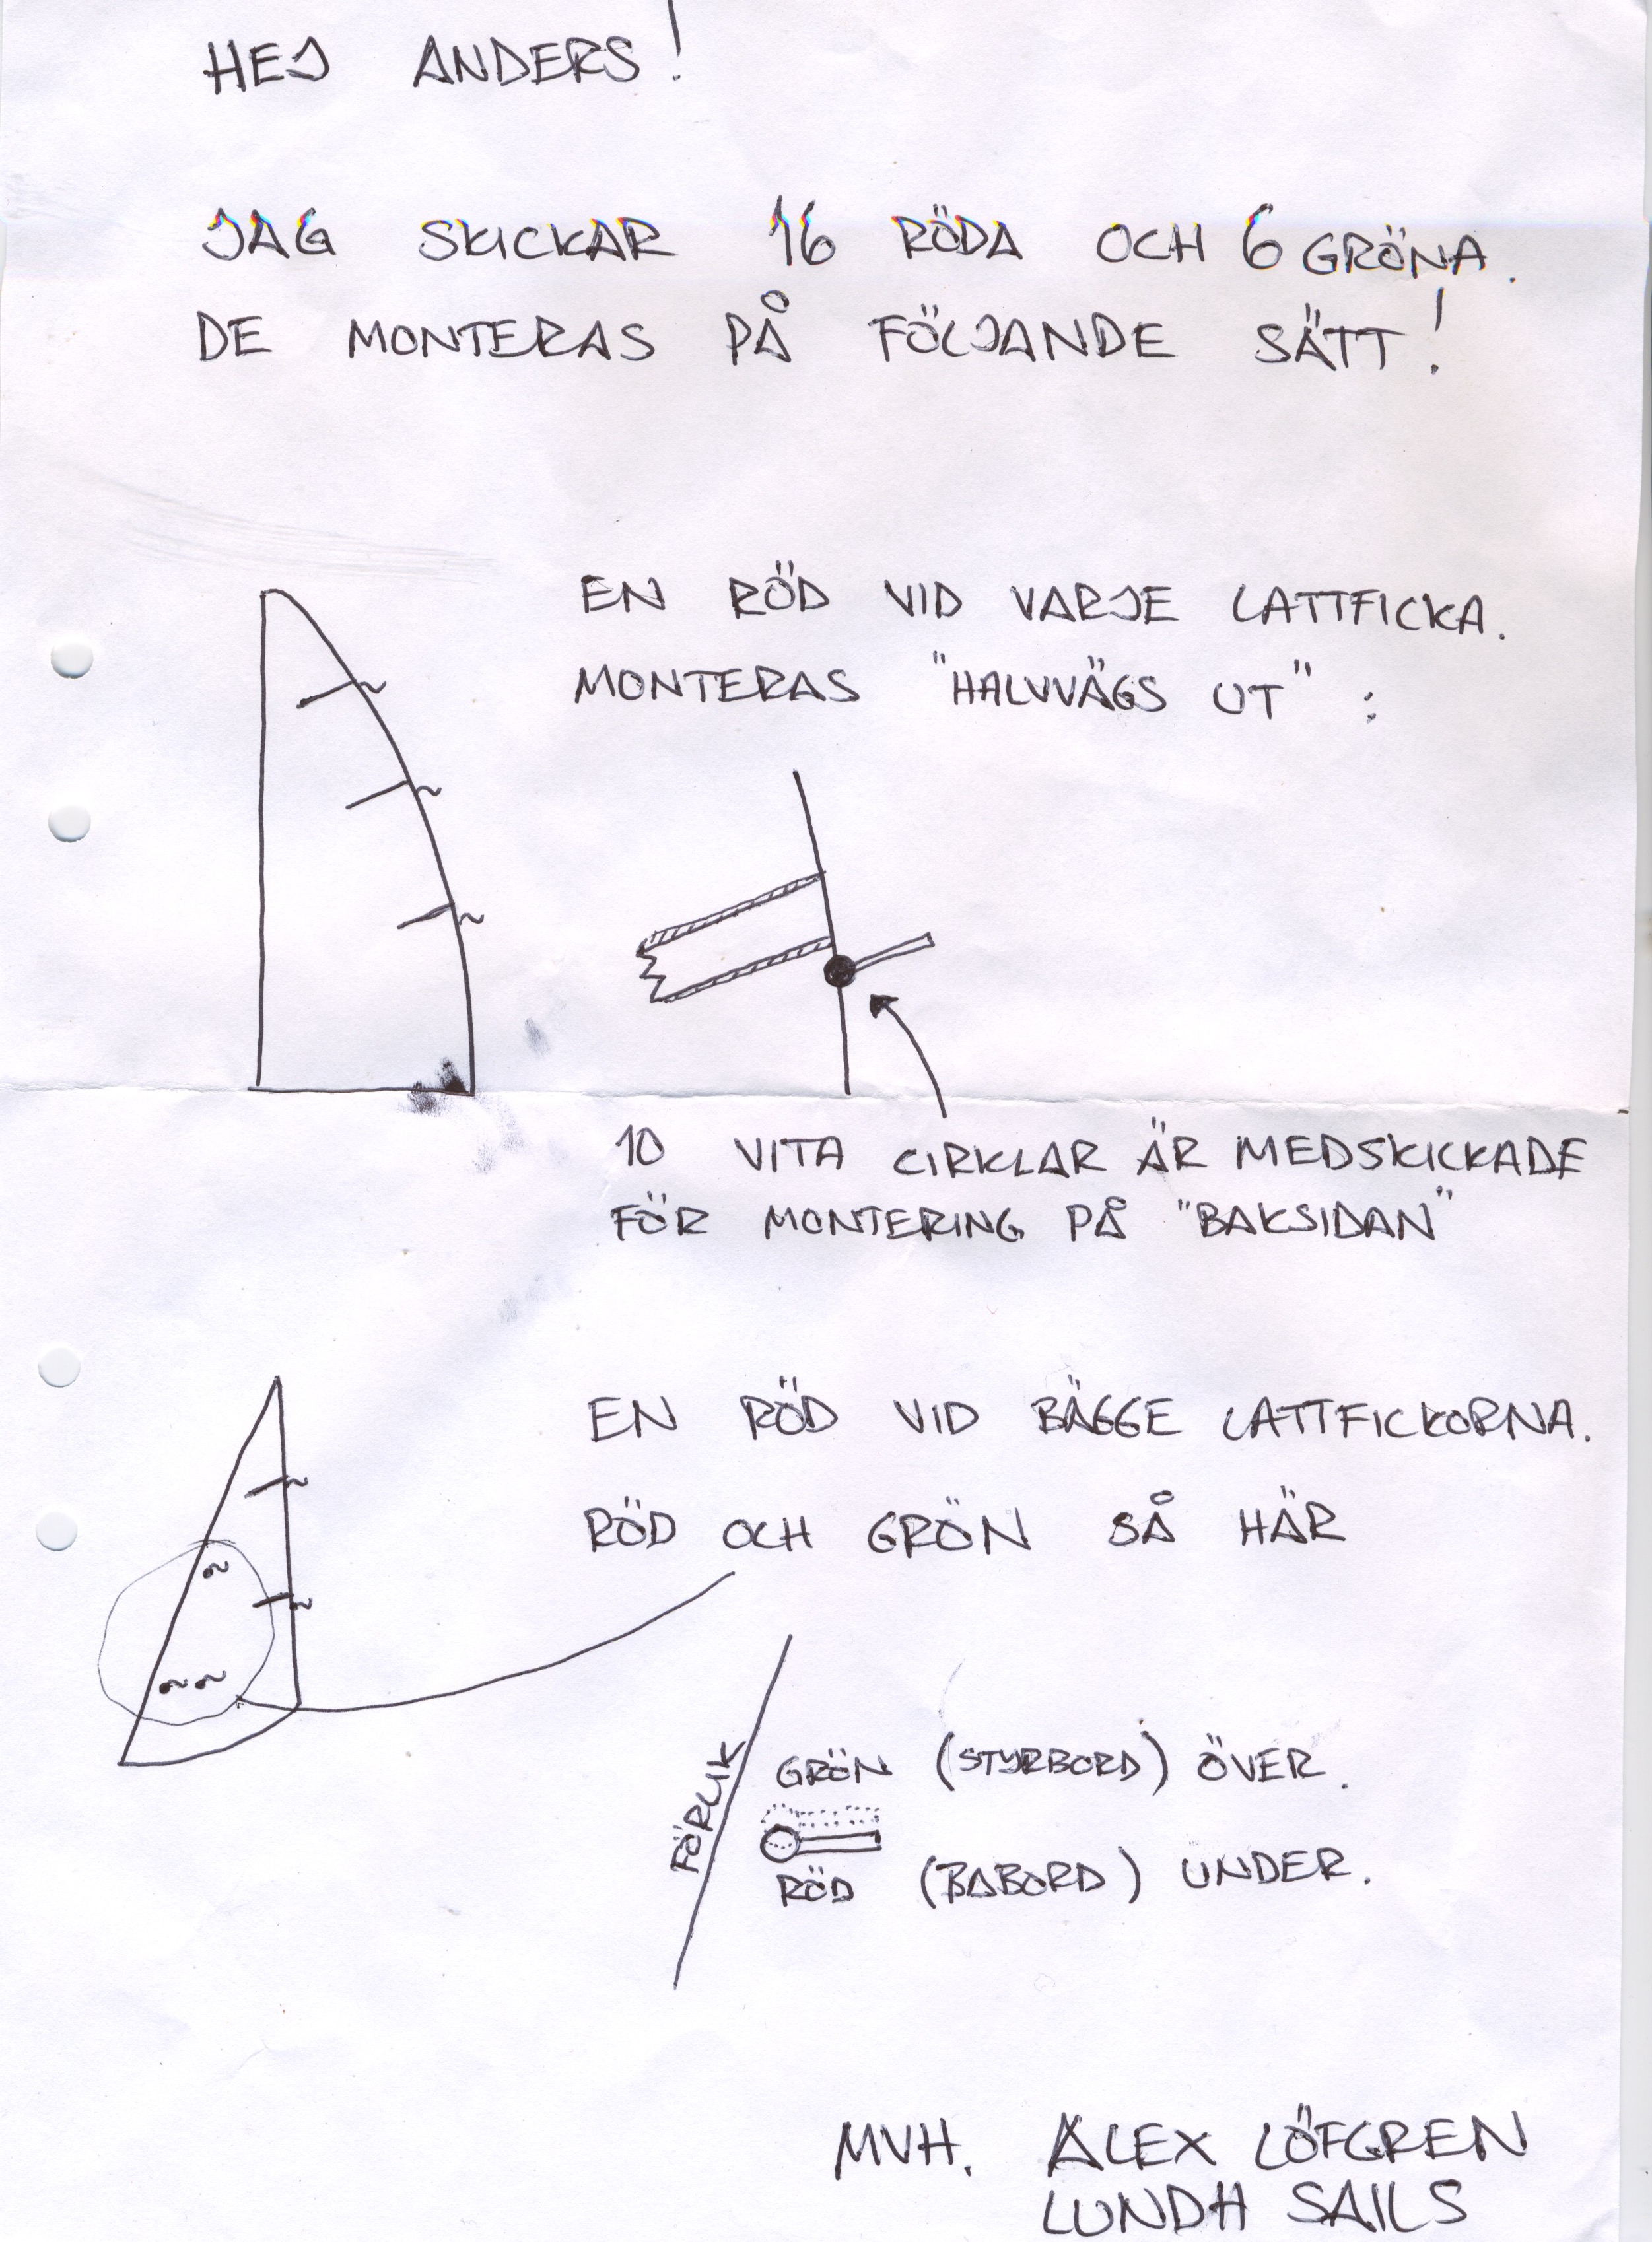 HEJ ANDERS!
JAG SKICKAR 16 RÖDA OCH 6 GRÖNA.
DE MONTERAS PÅ FÖLJANDE SÄTT!
EN RÖD VID VARJE LATTFICKA.
MONTERAS "HALVVÄGS UT":
10 VITA CIRKLAR ÄR MEDSKICKADE
FÖR MONTERING PÅ "BAKSIDAN"
EN RÖD VID BÄGGE LATTFICKORNA.
RÖD OCH GRÖN SÅ HÄR
FÖRLIK
GRÖN (STYRBORD) ÖVER.
RÖD (BABORD) UNDER.
MVH. ALEX LÖFGREN
LUNDH SAILS